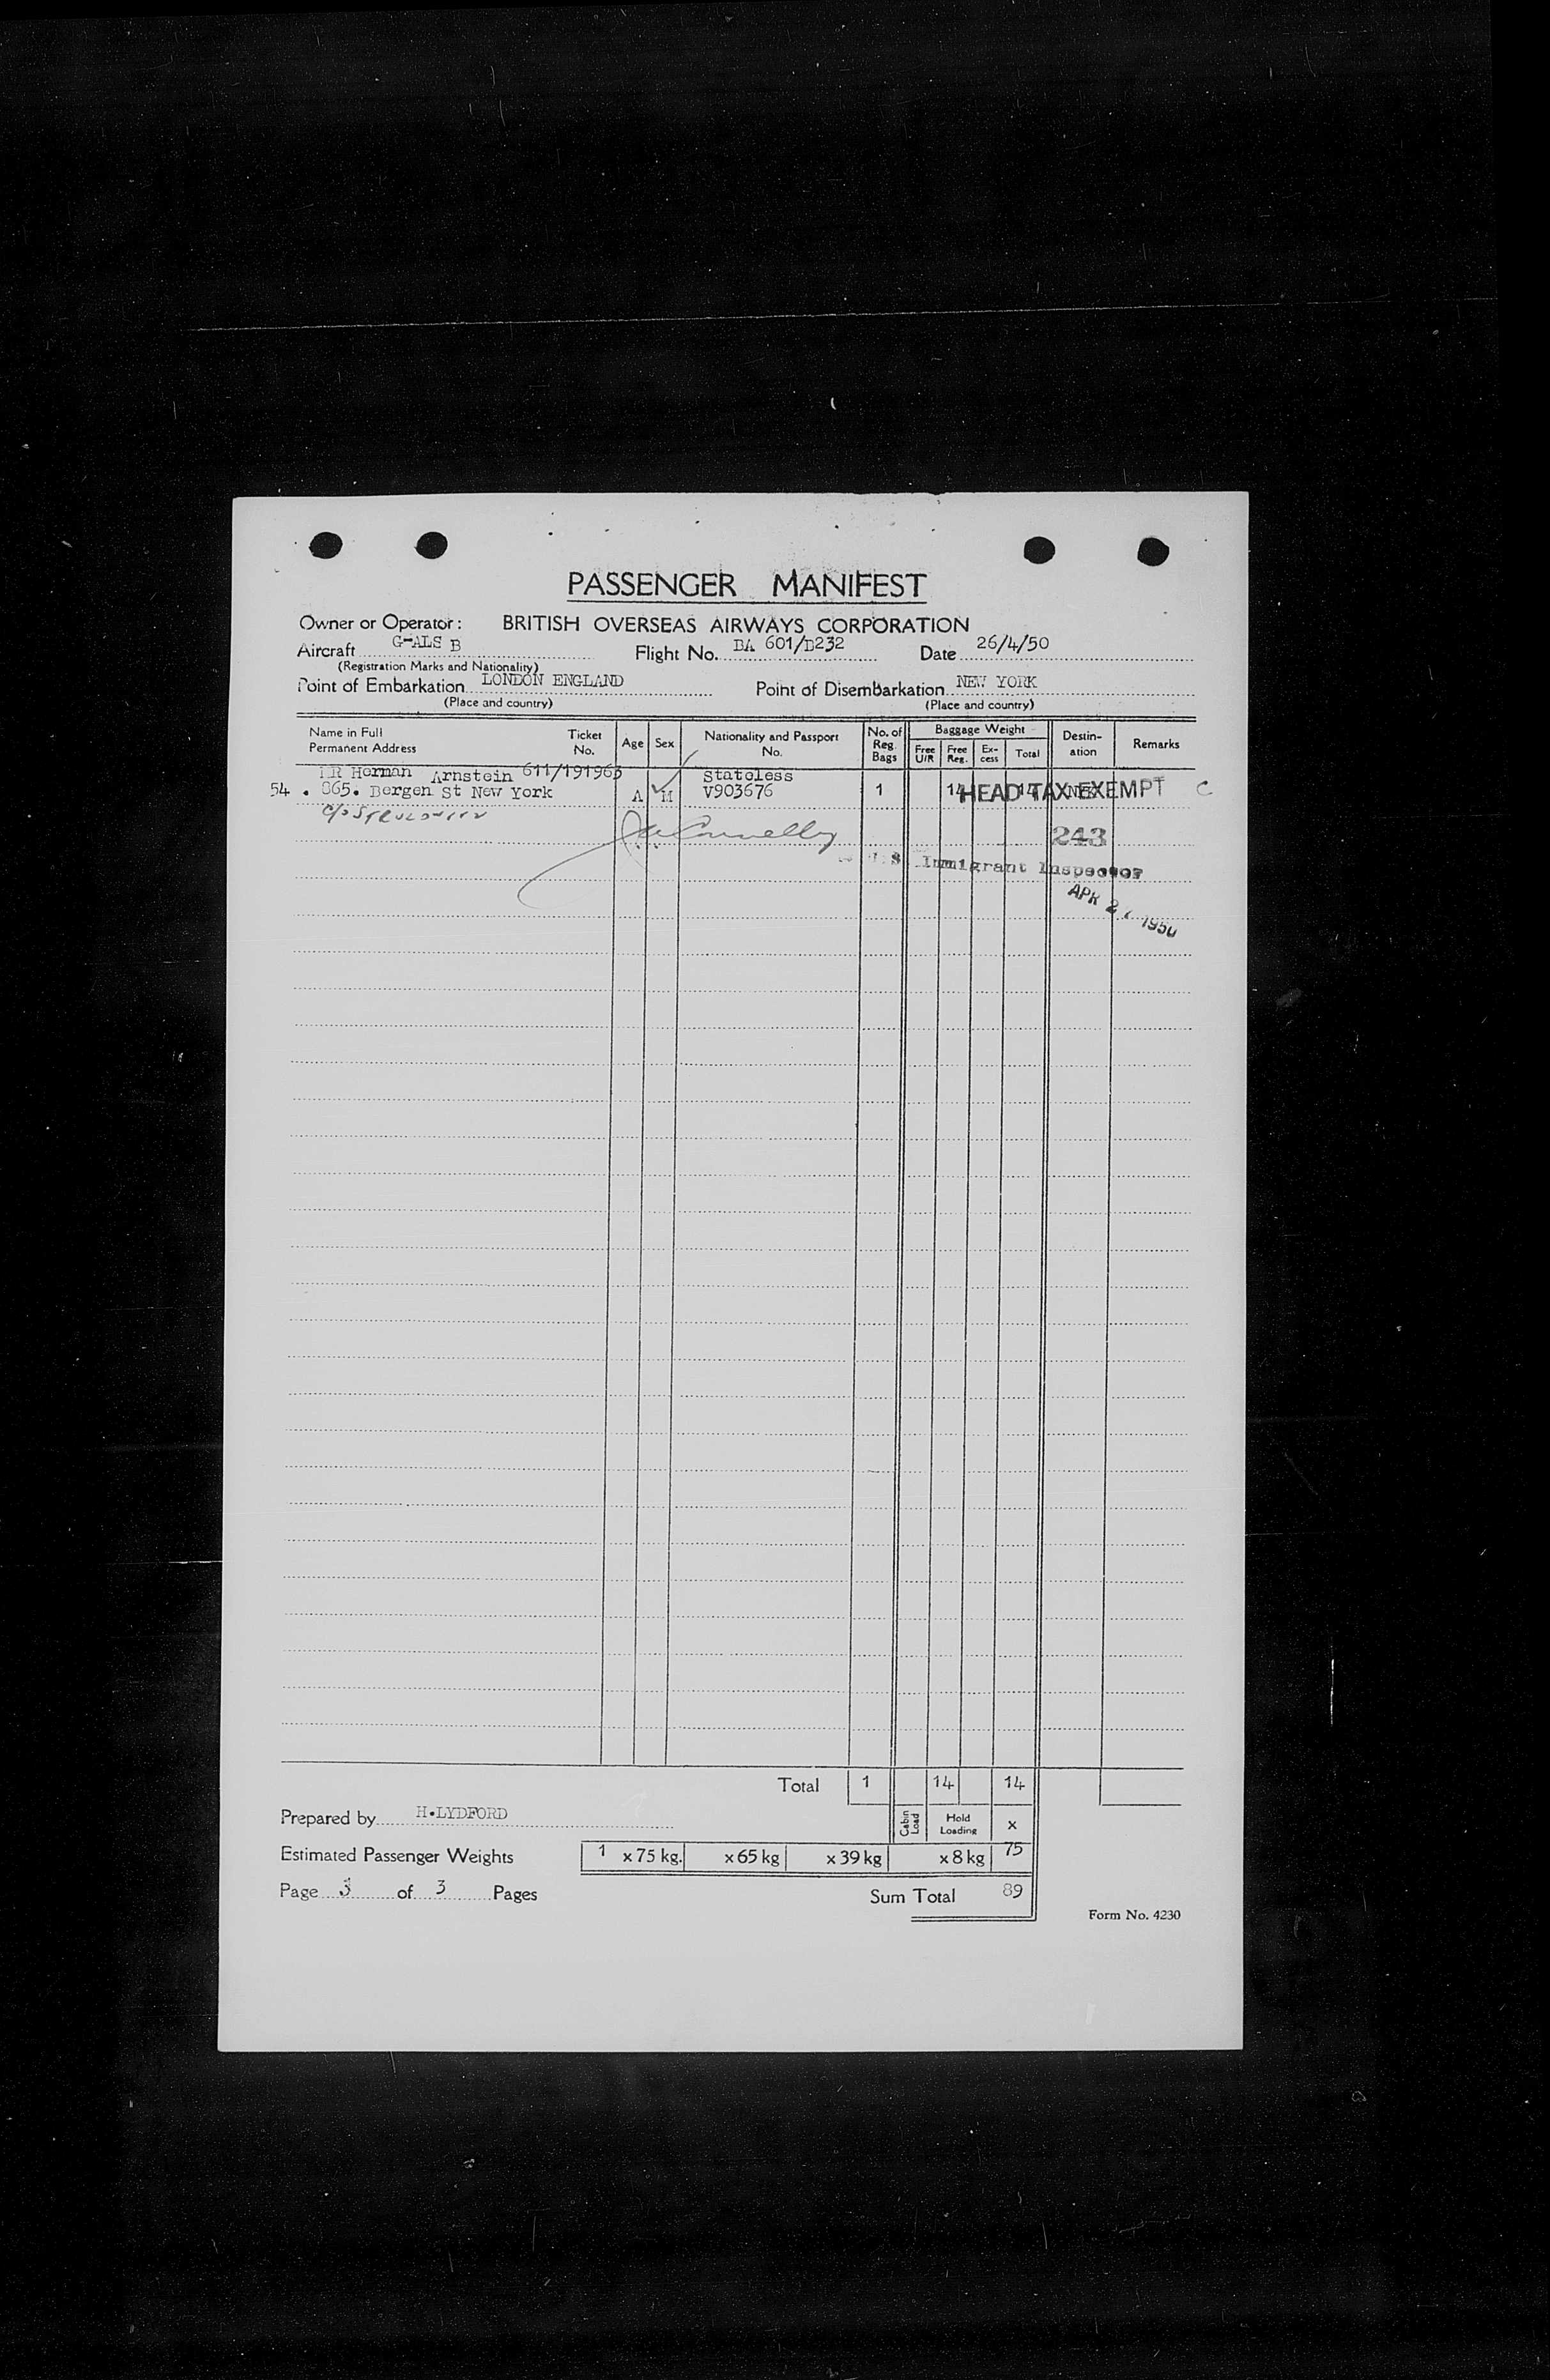 PASSENGER MANIFEST
Owner or Operator: BRITISH OVERSEAS AIRWAYS CORPORATION
Aircraft G-ALS B Flight No. BA 601/B232 Date 26/4/50
(Registration Marks and Nationality)
Point of Embarkation LONDON ENGLAND Point of Disembarkation NEW YORK
(Place and country) (Place and country)
Name in Full Permanent Address Ticket No. Age Sex Nationality and Passport No. No. of Reg. Bags Baggage Weight Free U/R Free Reg. Ex-cess Total Destin-ation Remarks
Herman Arnstein 611/191963 Stateless
54 . 865. Bergen St New York A M V903676 1 14 14 HEAD TAX EXEMPT C
c/o
243
U S Immigrant Inspector
APR 27 1950
Total 1 14 14
Prepared by H.LYDFORD Cabin Load Hold Loading x
Estimated Passenger Weights 1 x 75 kg. x 65 kg x 39 kg x 8 kg 75
Page 3 of 3 Pages Sum Total 89
Form No. 4230